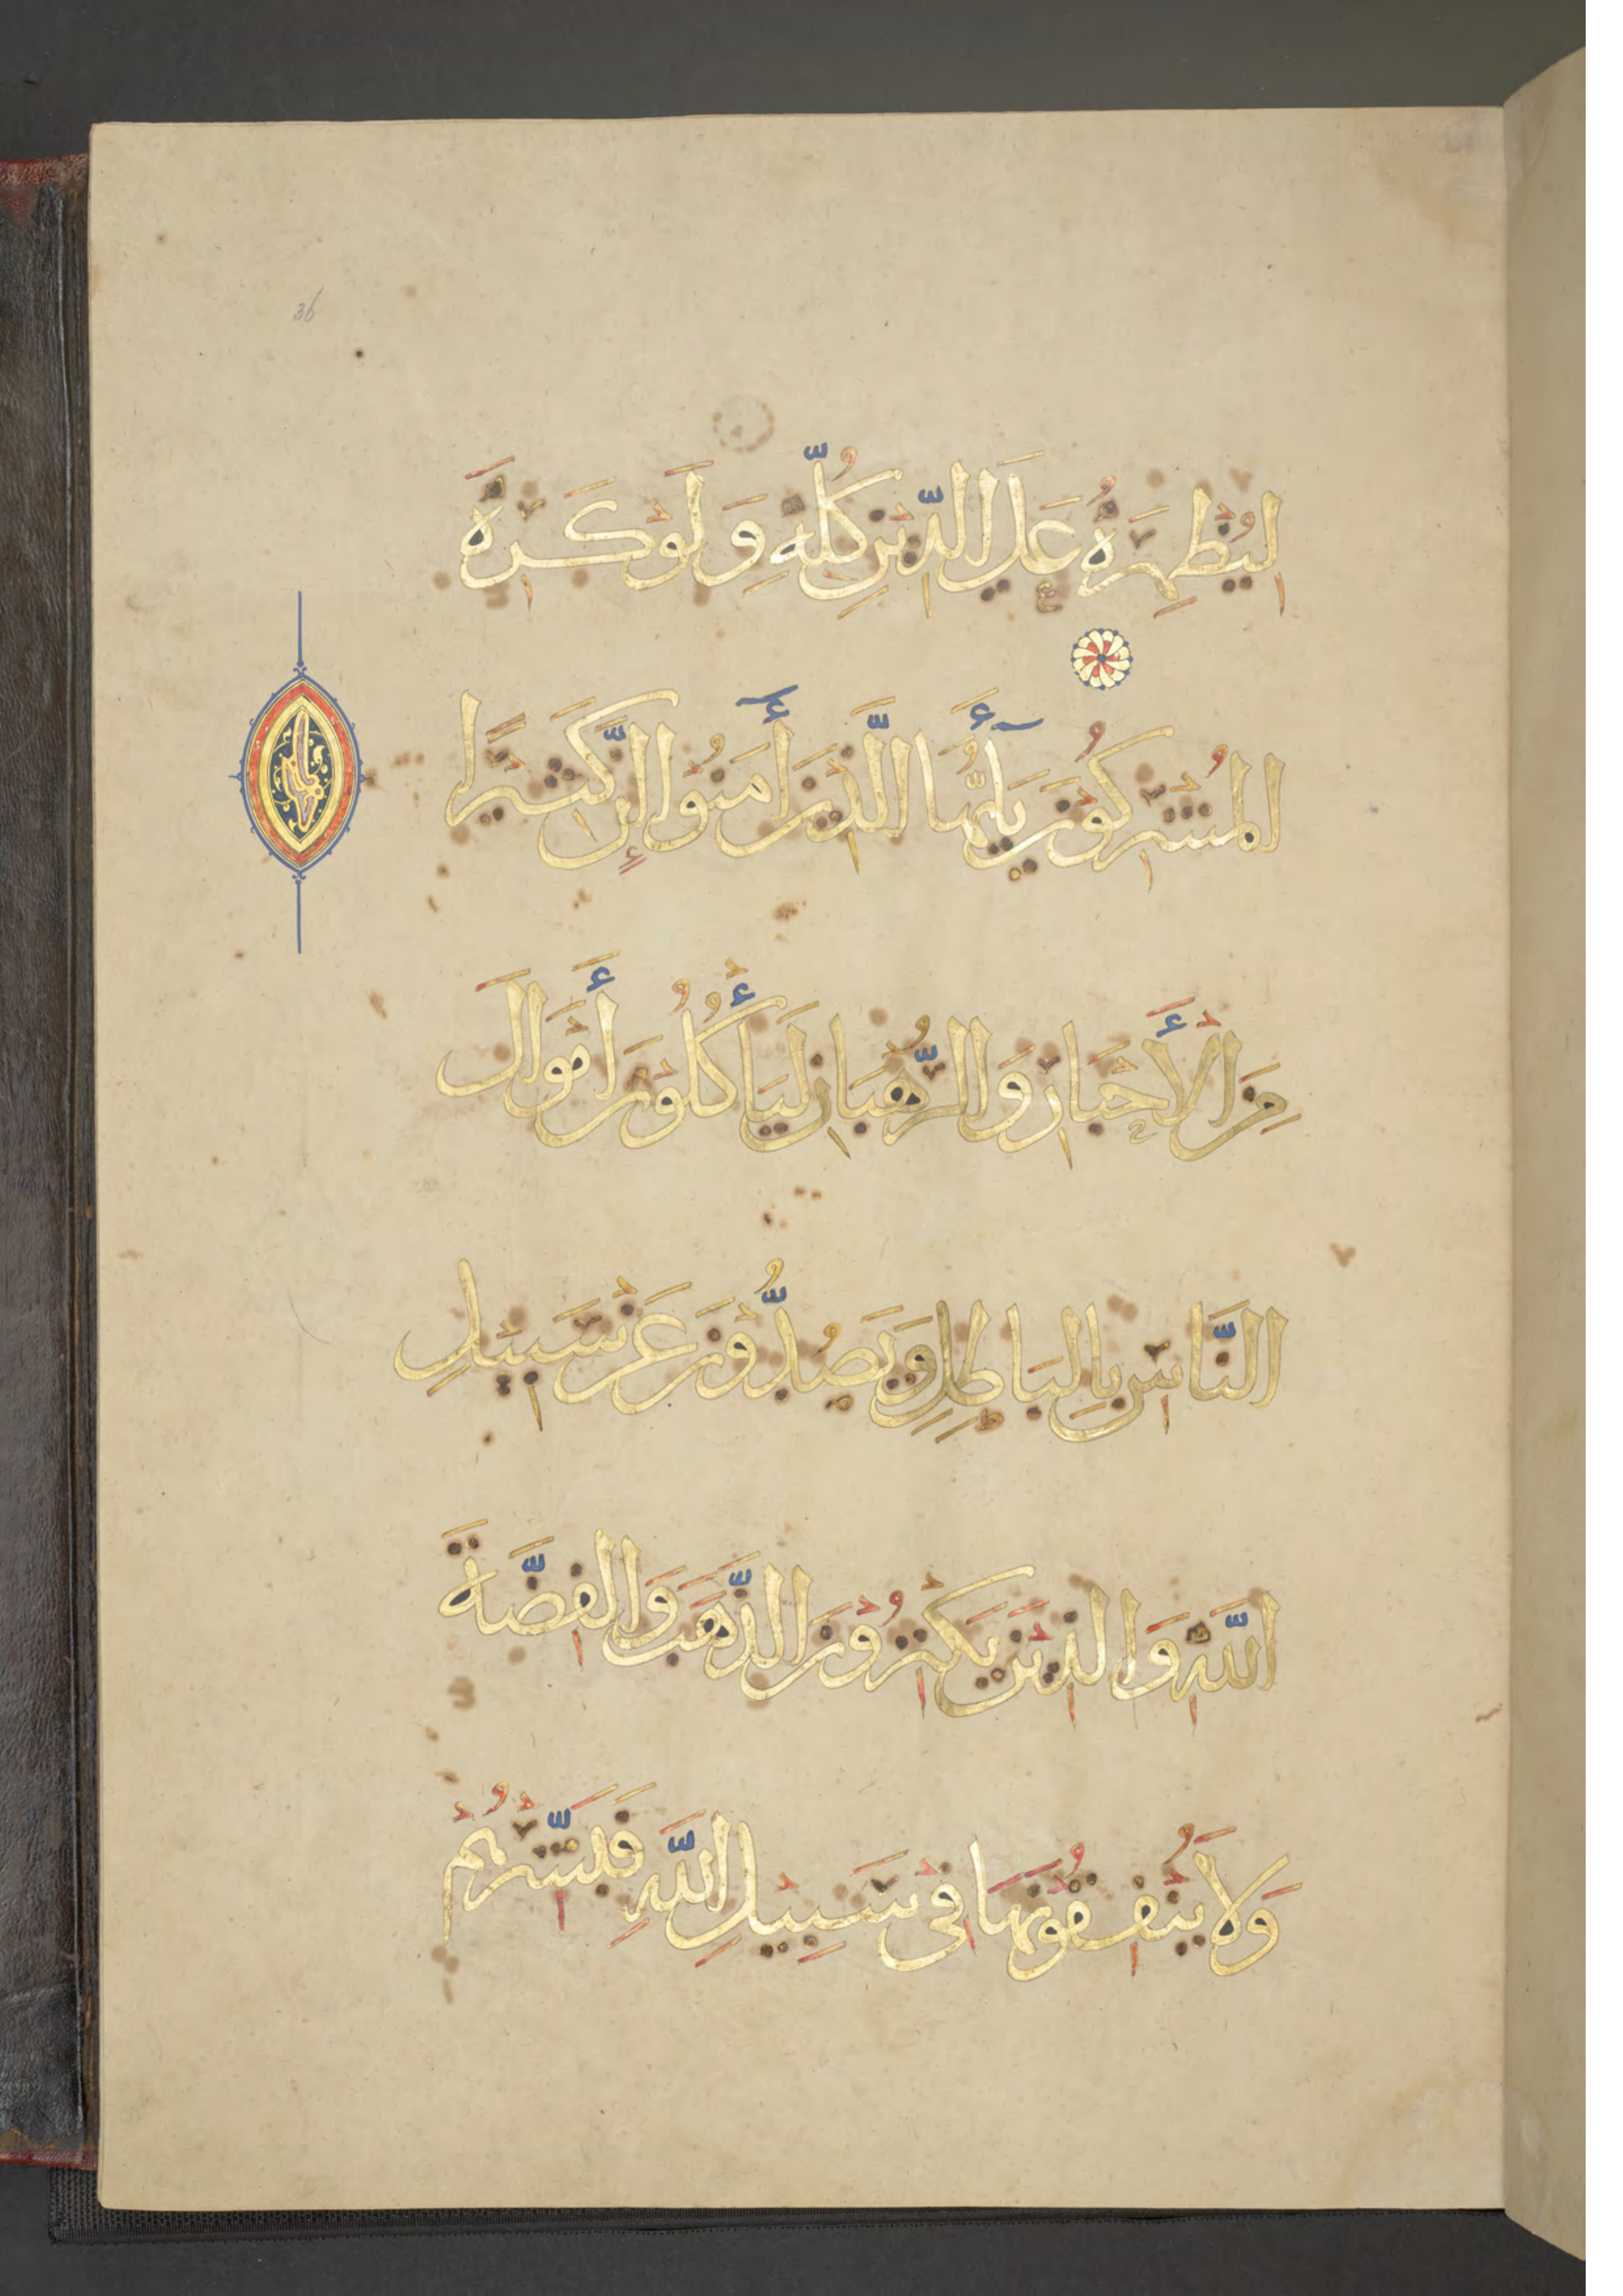 36
لِيُظْهِرَهُ عَلَى الدِّيْنِ كُلِّهِ وَلَوْ كَرِهَ
الْمُشْرِكُوْنَ يَٰأَيُّهَا الَّذِيْنَ أٰمَنُوْا إِنَّ كَثِيْرًا
مِنَ الْأَحْبَارِ وَالرُّهْبَانِ لَيَأْكُلُوْنَ أَمْوَالَ
النَّاسِ بِالْبَاطِلِ وَيَصُدُّوْنَ عَنْ سَبِيْلِ
اللّٰهِ وَالَّذِيْنَ يَكْنِزُوْنَ الذَّهَبَ وَالْفِضَّةَ
وَلَا يُنْفِقُوْنَهَا فِيْ سَبِيْلِ اللّٰهِ فَبَشِّرْهُمْ